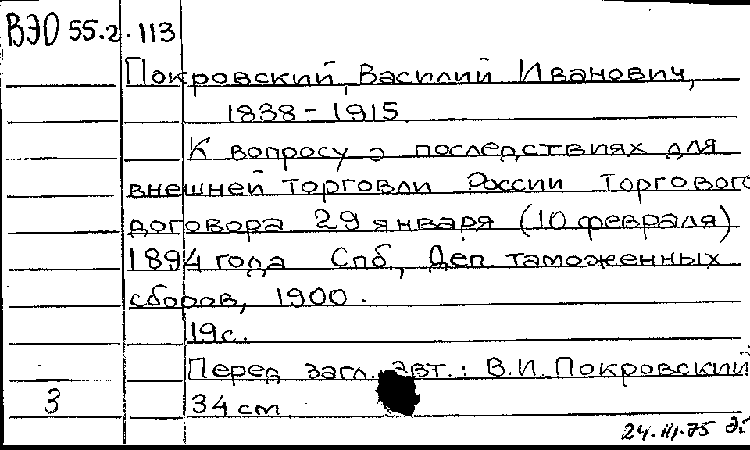 ВЭО 55.2.113
Покровский, Василий Иванович,
1838 - 1915.
К вопросу о последствиях для
внешней торговли России Торгового
договора 29 января (10 февраля)
1894 года Спб, Деп таможенных
сборов, 1900.
19 с.
Перед загл. авт.: В.И. Покровский
3 34 см
24.III.75